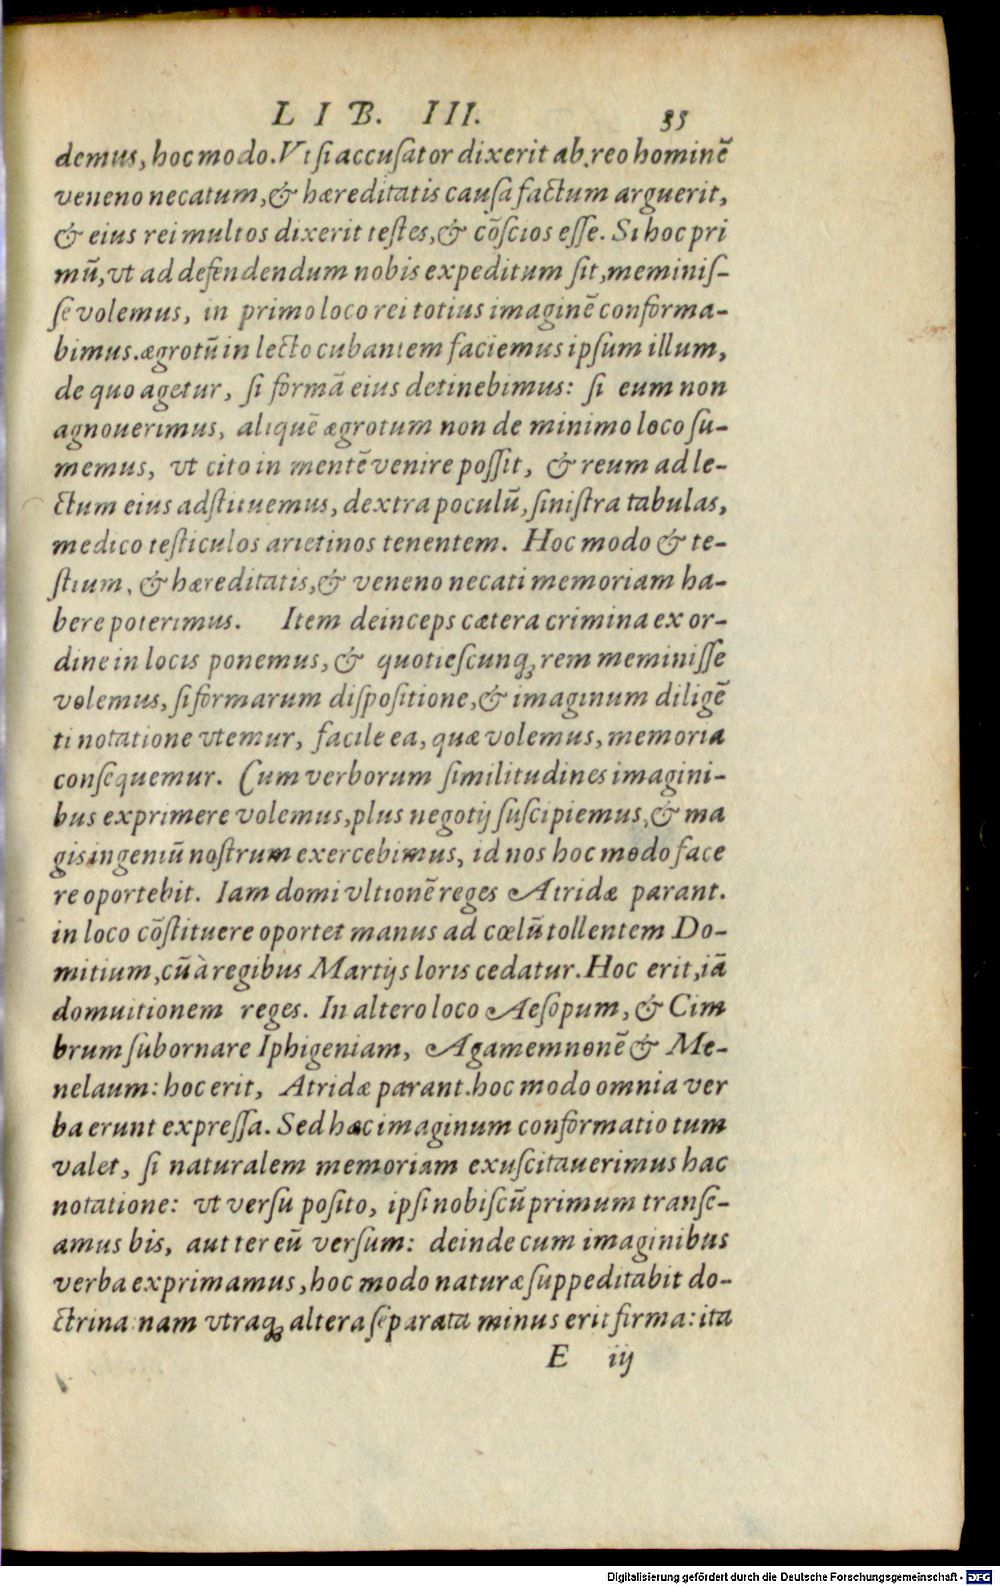 LIB. III. 35
demus, hoc modo. Vt si accusator dixerit ab reo hominē
veneno necatum, & hæreditatis causa factum arguerit,
& eius rei multos dixerit testes, & cōscios esse. Si hoc pri
mū, vt ad defendendum nobis expeditum sit, meminis-
se volemus, in primo loco rei totius imaginē conforma-
bimus. ægrotū in lecto cubantem faciemus ipsum illum,
de quo agetur, si formā eius detinebimus: si eum non
agnouerimus, aliquē ægrotum non de minimo loco su-
memus, vt cito in mentē venire possit, & reum ad le-
ctum eius adstituemus, dextra poculū, sinistra tabulas,
medico testiculos arietinos tenentem. Hoc modo & te-
stium, & hæreditatis, & veneno necati memoriam ha-
bere poterimus. Item deinceps cætera crimina ex or-
dine in locis ponemus, & quotiescunq; rem meminisse
volemus, si formarum dispositione, & imaginum diligē
ti notatione vtemur, facile ea, quæ volemus, memoria
consequemur. Cum verborum similitudines imagini-
bus exprimere volemus, plus negotij suscipiemus, & ma
gis ingeniū nostrum exercebimus, id nos hoc modo face
re oportebit. Iam domi vltionē reges Atridæ parant.
in loco cōstituere oportet manus ad cœlū tollentem Do-
mitium, cū à regibus Martijs loris cedatur. Hoc erit, iā
domuitionem reges. In altero loco Aesopum, & Cim
brum subornare Iphigeniam, Agamemnonē & Me-
nelaum: hoc erit, Atridæ parant. hoc modo omnia ver
ba erunt expressa. Sed hæc imaginum conformatio tum
valet, si naturalem memoriam exuscitauerimus hac
notatione: vt versu posito, ipsi nobiscū primum transe-
amus bis, aut ter eū versum: deinde cum imaginibus
verba exprimamus, hoc modo naturæ suppeditabit do-
ctrina: nam vtraq; altera separata minus erit firma: ita
E iij
Digitalisierung gefördert durch die Deutsche Forschungsgemeinschaft - DFG